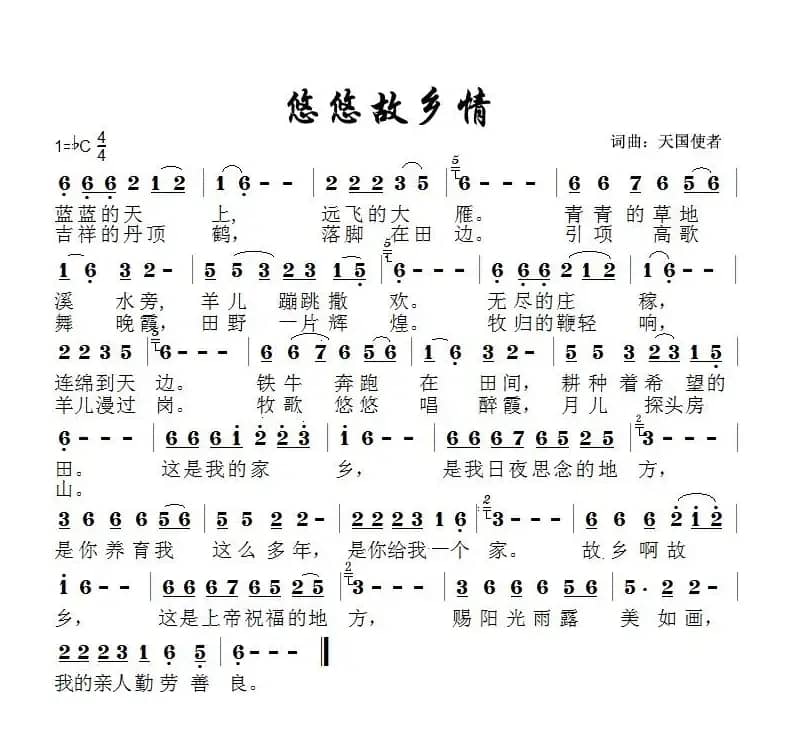 悠悠故乡情
1=♭C 4/4 词曲：天国使者
6 6 6 2 1 2 | 1 6 - - | 2 2 2 3 5 | 5 6 - - | 6 6 7 6 5 6 |
蓝蓝的天 上, 远飞的大 雁。 青青的草地
吉祥的丹顶 鹤, 落脚 在田 边。 引项 高歌
1 6 3 2 - | 5 5 3 2 3 1 5 | 2 6 - - | 6 6 6 2 1 2 | 1 6 - - |
溪 水旁, 羊儿 蹦跳撒 欢。 无尽的庄 稼,
舞 晚霞, 田野 一片辉 煌。 牧归的鞭轻 响,
2 2 3 5 | 3 6 - - | 6 6 7 5 6 | 1 6 2 - | 5 5 3 2 3 1 5 |
连绵到天 边。 铁牛 奔跑 在 田间, 耕种着希 望的
羊儿漫过 岗。 牧歌 悠悠 唱 醉霞, 月儿 探头房
6 - - | 6 6 6 1 2 2 3 | 1 6 - - | 6 6 6 7 6 5 2 5 | 2 3 - - |
田。 这是我的家 乡, 是我日夜思念的地 方,
山。
3 6 6 6 5 6 | 5 5 2 2 - | 2 2 2 3 1 6 | 2 3 - - | 6 6 6 2 1 2 |
是你养育我 这么多年, 是你给我一个 家。 故乡啊故
1 6 - - | 6 6 6 7 6 5 2 5 | 2 3 - - | 3 6 6 6 5 6 | 5· 2 2 - |
乡, 这是上帝祝福的地 方, 赐阳光雨露 美如画,
2 2 2 3 1 6 5 | 6 - - ‖
我的亲人勤劳善 良。